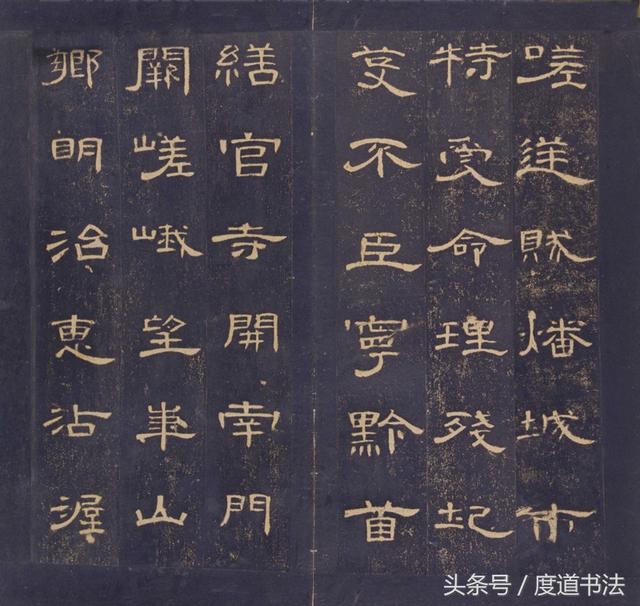 嗟逆賊燔城市
特受命理殘圮
芟不臣寧黔首
繕官寺開南門
闕嵯峨望華山
鄉明治惠沾渥
头条号 / 度道书法